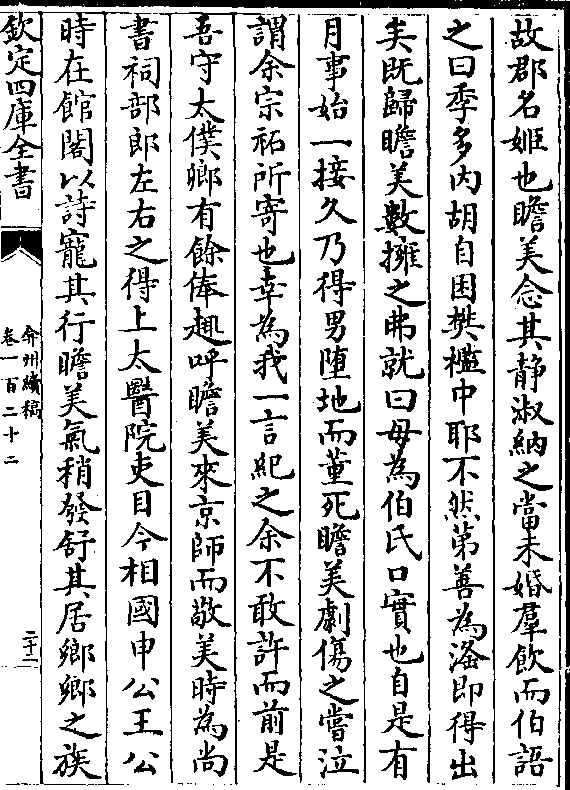 故郡名姬也瞻美念其静淑納之當未婚羣飲而伯語
之曰季多内胡自困樊檻中耶不然第善為滛即得出
矣既歸瞻美數擁之弗就曰毋為伯氏口實也自是有
月事始一接久乃得男墮地而董死瞻美劇傷之嘗泣
謂余宗祏所寄也幸為我一言紀之余不敢許而前是
吾守太僕鄉有餘俸趣呼瞻美來京師而敬美時為尚
書祠部郎左右之得上太醫院吏目今相國申公王公
時在館閣以詩寵其行瞻美氣稍發舒其居鄉鄉之族
欽定四庫全書
弇州續稿
卷一百二十二
二十二